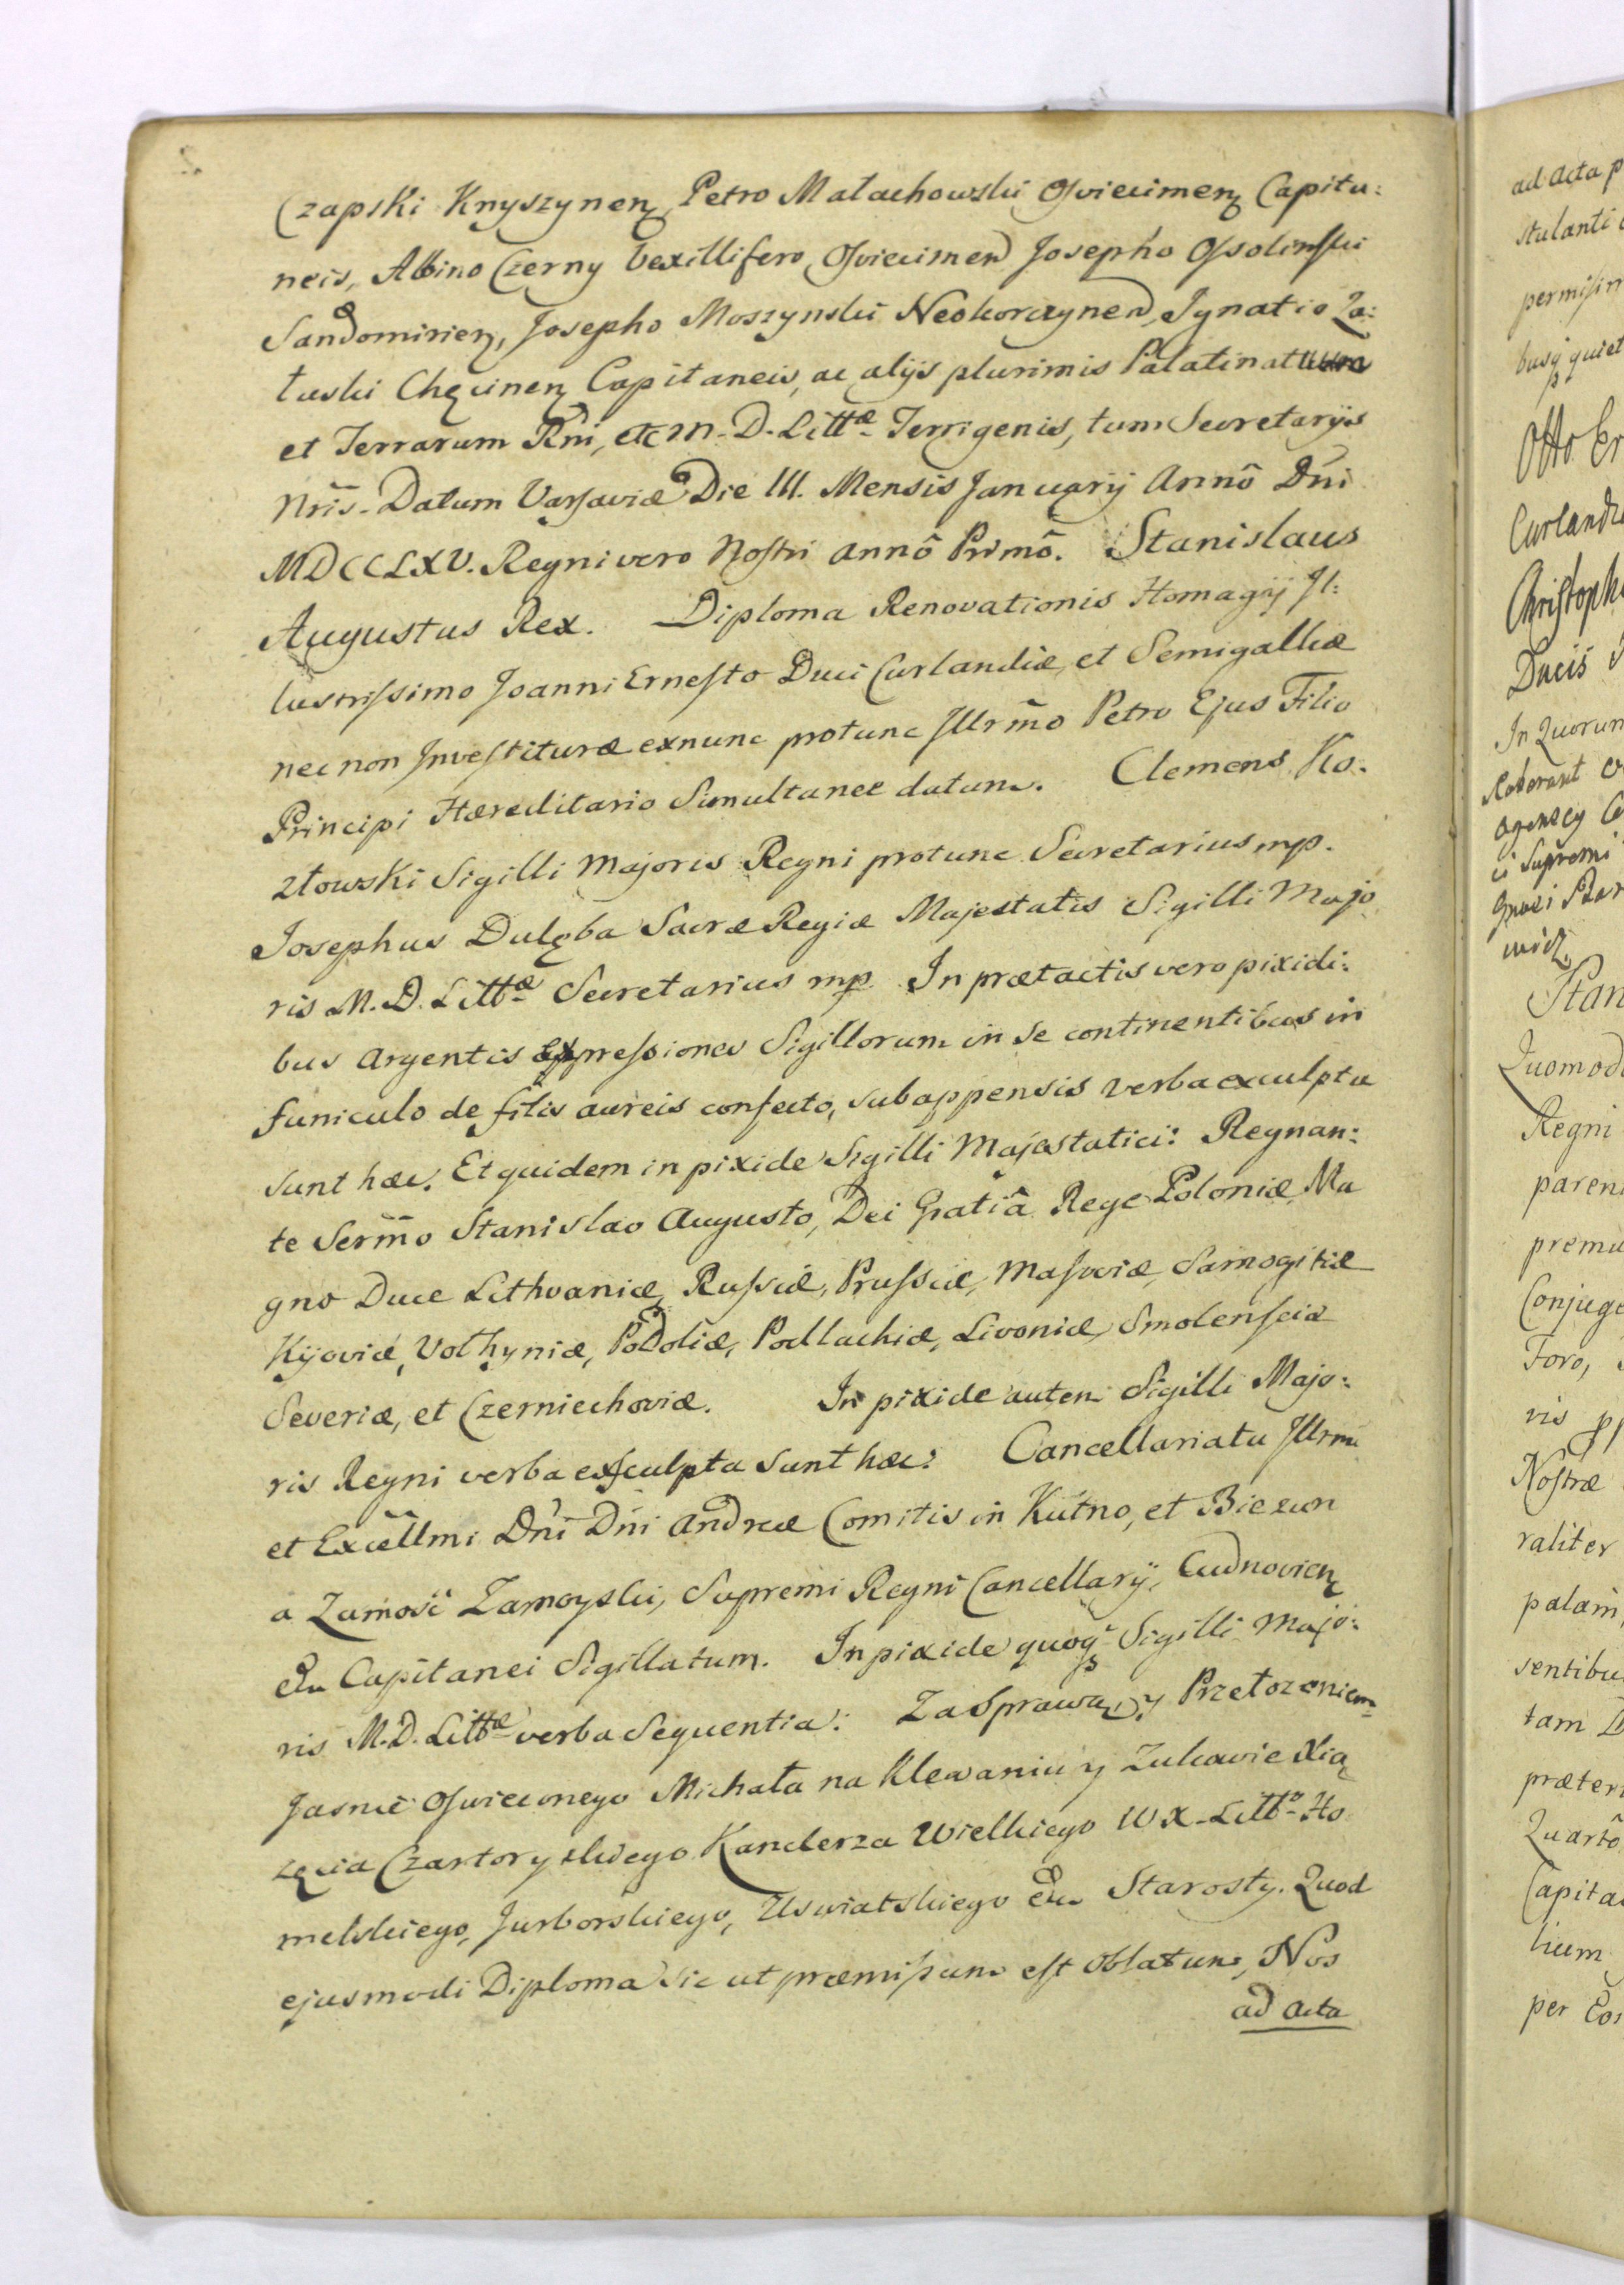 Czapski Knyszynen, Petro Małachowski Osviecimen Capita:
neis, Albino Czerny Vexillifero Osviecimen Josepho Ossolinski
Sandomirien, Josepho Moszynski Neokorczynen, Ignatio Za:
łuski Chęcinen Capitaneis, ac alijs plurimis Palatinatuum
et Terrarum Rni, et M. D. Littæ Terrigenis, tum Secretarijs
Nris. Datum Varsaviæ Die III. Mensis January Annô Dni
MDCCLXV. Regni vero Nostri annô Primô. Stanislaus
Augustus Rex. Diploma Renovationis Homagij Il:
lustrissimo Joanni Ernesto Duci Curlandiæ, et Semigalliæ
nec non Investituræ exnunc protunc Illrmo Petro Ejus Filio
Principi Hæreditario Simultanee datum. Clemens Ko.
złowski Sigilli Majoris Regni protunc Secretarius mp.
Josephus Dulęba Sacræ Regiæ Majestatis Sigilli Majo
ris M. D. Littæ Secretarius mp. In prætactis vero pixidi:
bus argenteis expressiones Sigillorum in se continentibus in
funiculo de filis aureis confecto, subappensis verba exculpta
sunt hæc. Et quidem in pixide Sigilli Majestatici: Regnan:
te Sermo Stanislao Augusto, Dei Gratiâ Rege Poloniæ Ma
gno Duce Lithvaniæ, Russiæ, Prussiæ, Masoviæ, Samogitiæ
Kijoviæ, Volhyniæ, Podoliæ, Podlachiæ, Livoniæ, Smolensciæ
Severiæ, et Czerniechoviæ. In pixide autem Sigilli Majo:
ris Regni verba exsculpta sunt hæc: Cancellariatu Illrmi
et Excellmi Dni Dni Andreæ Comitis in Kutno, et Biezun
a Zamość Zamoyski, Supremi Regni Cancellarij, Cudnovien
Capitanei Sigillatum. In pixide quoq Sigilli Majo:
ris M. D. Littæ verba Sequentia: Za Sprawą, y Przełozeniem
Jasnie Oswieconego Michała na Klewaniu y Zukowie Xią
zęcia Czartoryskiego Kanclerza Wielkiego W X. Littô Ho
melskiego, Jurborskiego, Uswiatskiego Starosty. Quod
ejusmodi Diploma sic ut præmissum est oblatum, Nos
ad acta
ad Acta p
stulanti
permissim
busq quiet
Otto Er
Curlandi
Christoph
Ducis
In Quorum
roborant
ci Supremi
Stan
Quomod
Regni
paren
premu
Conjuge
Foro,
vis
Nostræ
raliter
palam,
sentibu
tam D
præter
Quartô
Capita
lium
per